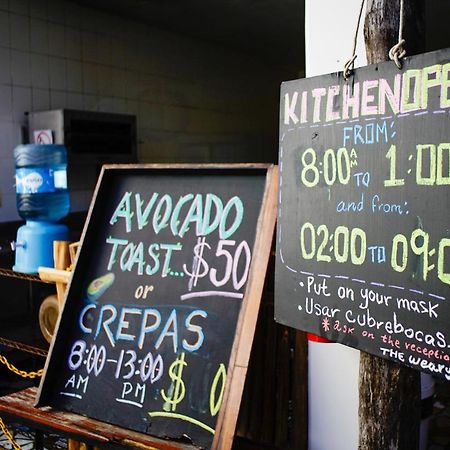 AVOCADO
TOAST... $50
or
CREPAS
8:00-13:00
AM PM
$ 0
KITCHEN OPE
FROM:
8:00 AM TO 1:00
and from:
02:00 TO 09:0
• Put on your mask
• Usar Cubrebocas
* ask on the reception
THE WEARY